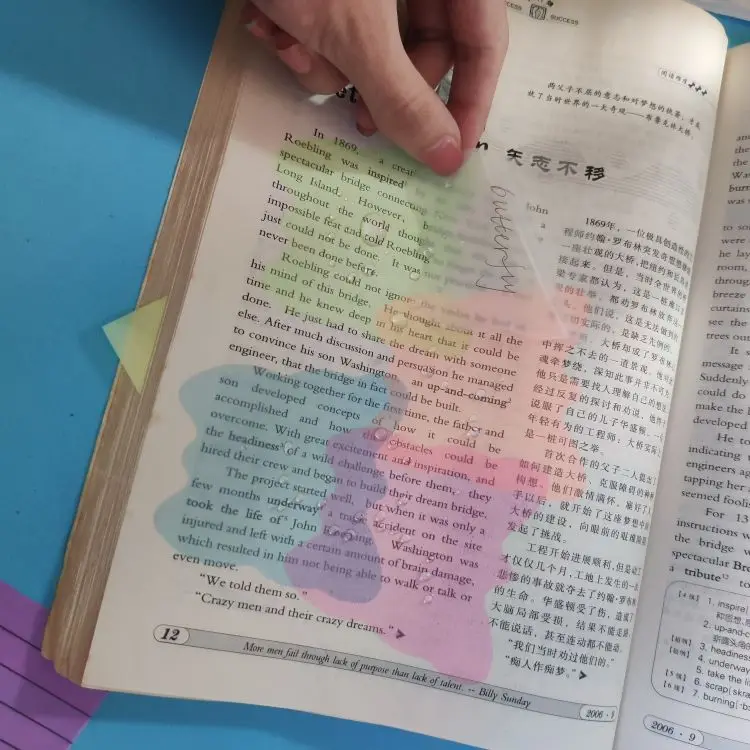 SUCCESS
SUCCESS
阅读作美
两父子不屈的意志和对梦想的执著，才成
就了当时世界的一大奇观——布鲁克林大桥。
矢志不移
butterfly
In 1869, a creat
Roebling was inspired
spectacular bridge connecting
Long Island. However, b
throughout the world though
impossible feat and told Roebling
just could not be done. It was
never been done before.
Roebling could not ignore
his mind of this bridge. He thought about it all the
time and he knew deep in his heart that it could be
done. He just had to share the dream with someone
else. After much discussion and persuasion he managed
to convince his son Washington, an up-and-coming²
engineer, that the bridge in fact could be built.
Working together for the first time, the father and
son developed concepts of how it could be
accomplished and how the obstacles could be
overcome. With great excitement and inspiration, and
the headiness of a wild challenge before them, they
hired their crew and began to build their dream bridge.
The project started well, but when it was only a
few months underway a tragic accident on the site
took the life of John Roebling. Washington was
injured and left with a certain amount of brain damage,
which resulted in him not being able to walk or talk or
even move.
"We told them so."
"Crazy men and their crazy dreams."
John
a
1869年，一位极具创造性的
程师约翰·罗布林突发奇想想建
一座壮观的大桥，把纽约和长岛连
接起来。但是，当时全世界的桥
梁专家都认为，这是一桩难以
的壮举，都劝罗布林放弃
他们说，这是无法做到的
切实际的，是缺乏先例的。
大桥却成了罗布林
中挥之不去的一道景观。他对此
魂牵梦绕，深知此事并非不可为
他只是需要找人理解自己的想法
经过反复的探讨和劝说，他终于
说服了自己的儿子华盛顿，一位
年轻有为的工程师：大桥实际上
是一桩可图之举。
首次合作的父子二人提出了
如何建造大桥、克服障碍的种种
构想。他们激情满怀，雇好了人
手以后，就开始了这座梦想中的
大桥的建设，向眼前的艰难险阻
发起了挑战。
工程开始进展顺利，但是动工
才仅仅几个月，工地上发生的一起
悲惨的事故就夺去了约翰·罗布林
的生命。华盛顿受了伤，造成了
大脑局部受损，结果不能走路，
不能说话，甚至连动都不能动。
“我们当时劝过他们的。”
“痴人作痴梦。”
12
More men fail through lack of purpose than lack of talent. -- Billy Sunday
2006·9
and
the
the
Wa
bur
was
to so
were
he lay
room,
throug
breeze
curtains
see the
trees out
It s
message
Suddenly
could do
make the b
developed
He to
indicating w
engineers aga
tapping her
seemed foolis
For 13
instructions w
the bridge w
spectacular Bro
a tribute¹² to
【4级】
1. inspire
2. up-and
3. headiness
4. underway
【5级】
5. take the li
【6级】
6. scrap[skræ
7. burning[ˈbɜ
2006·9